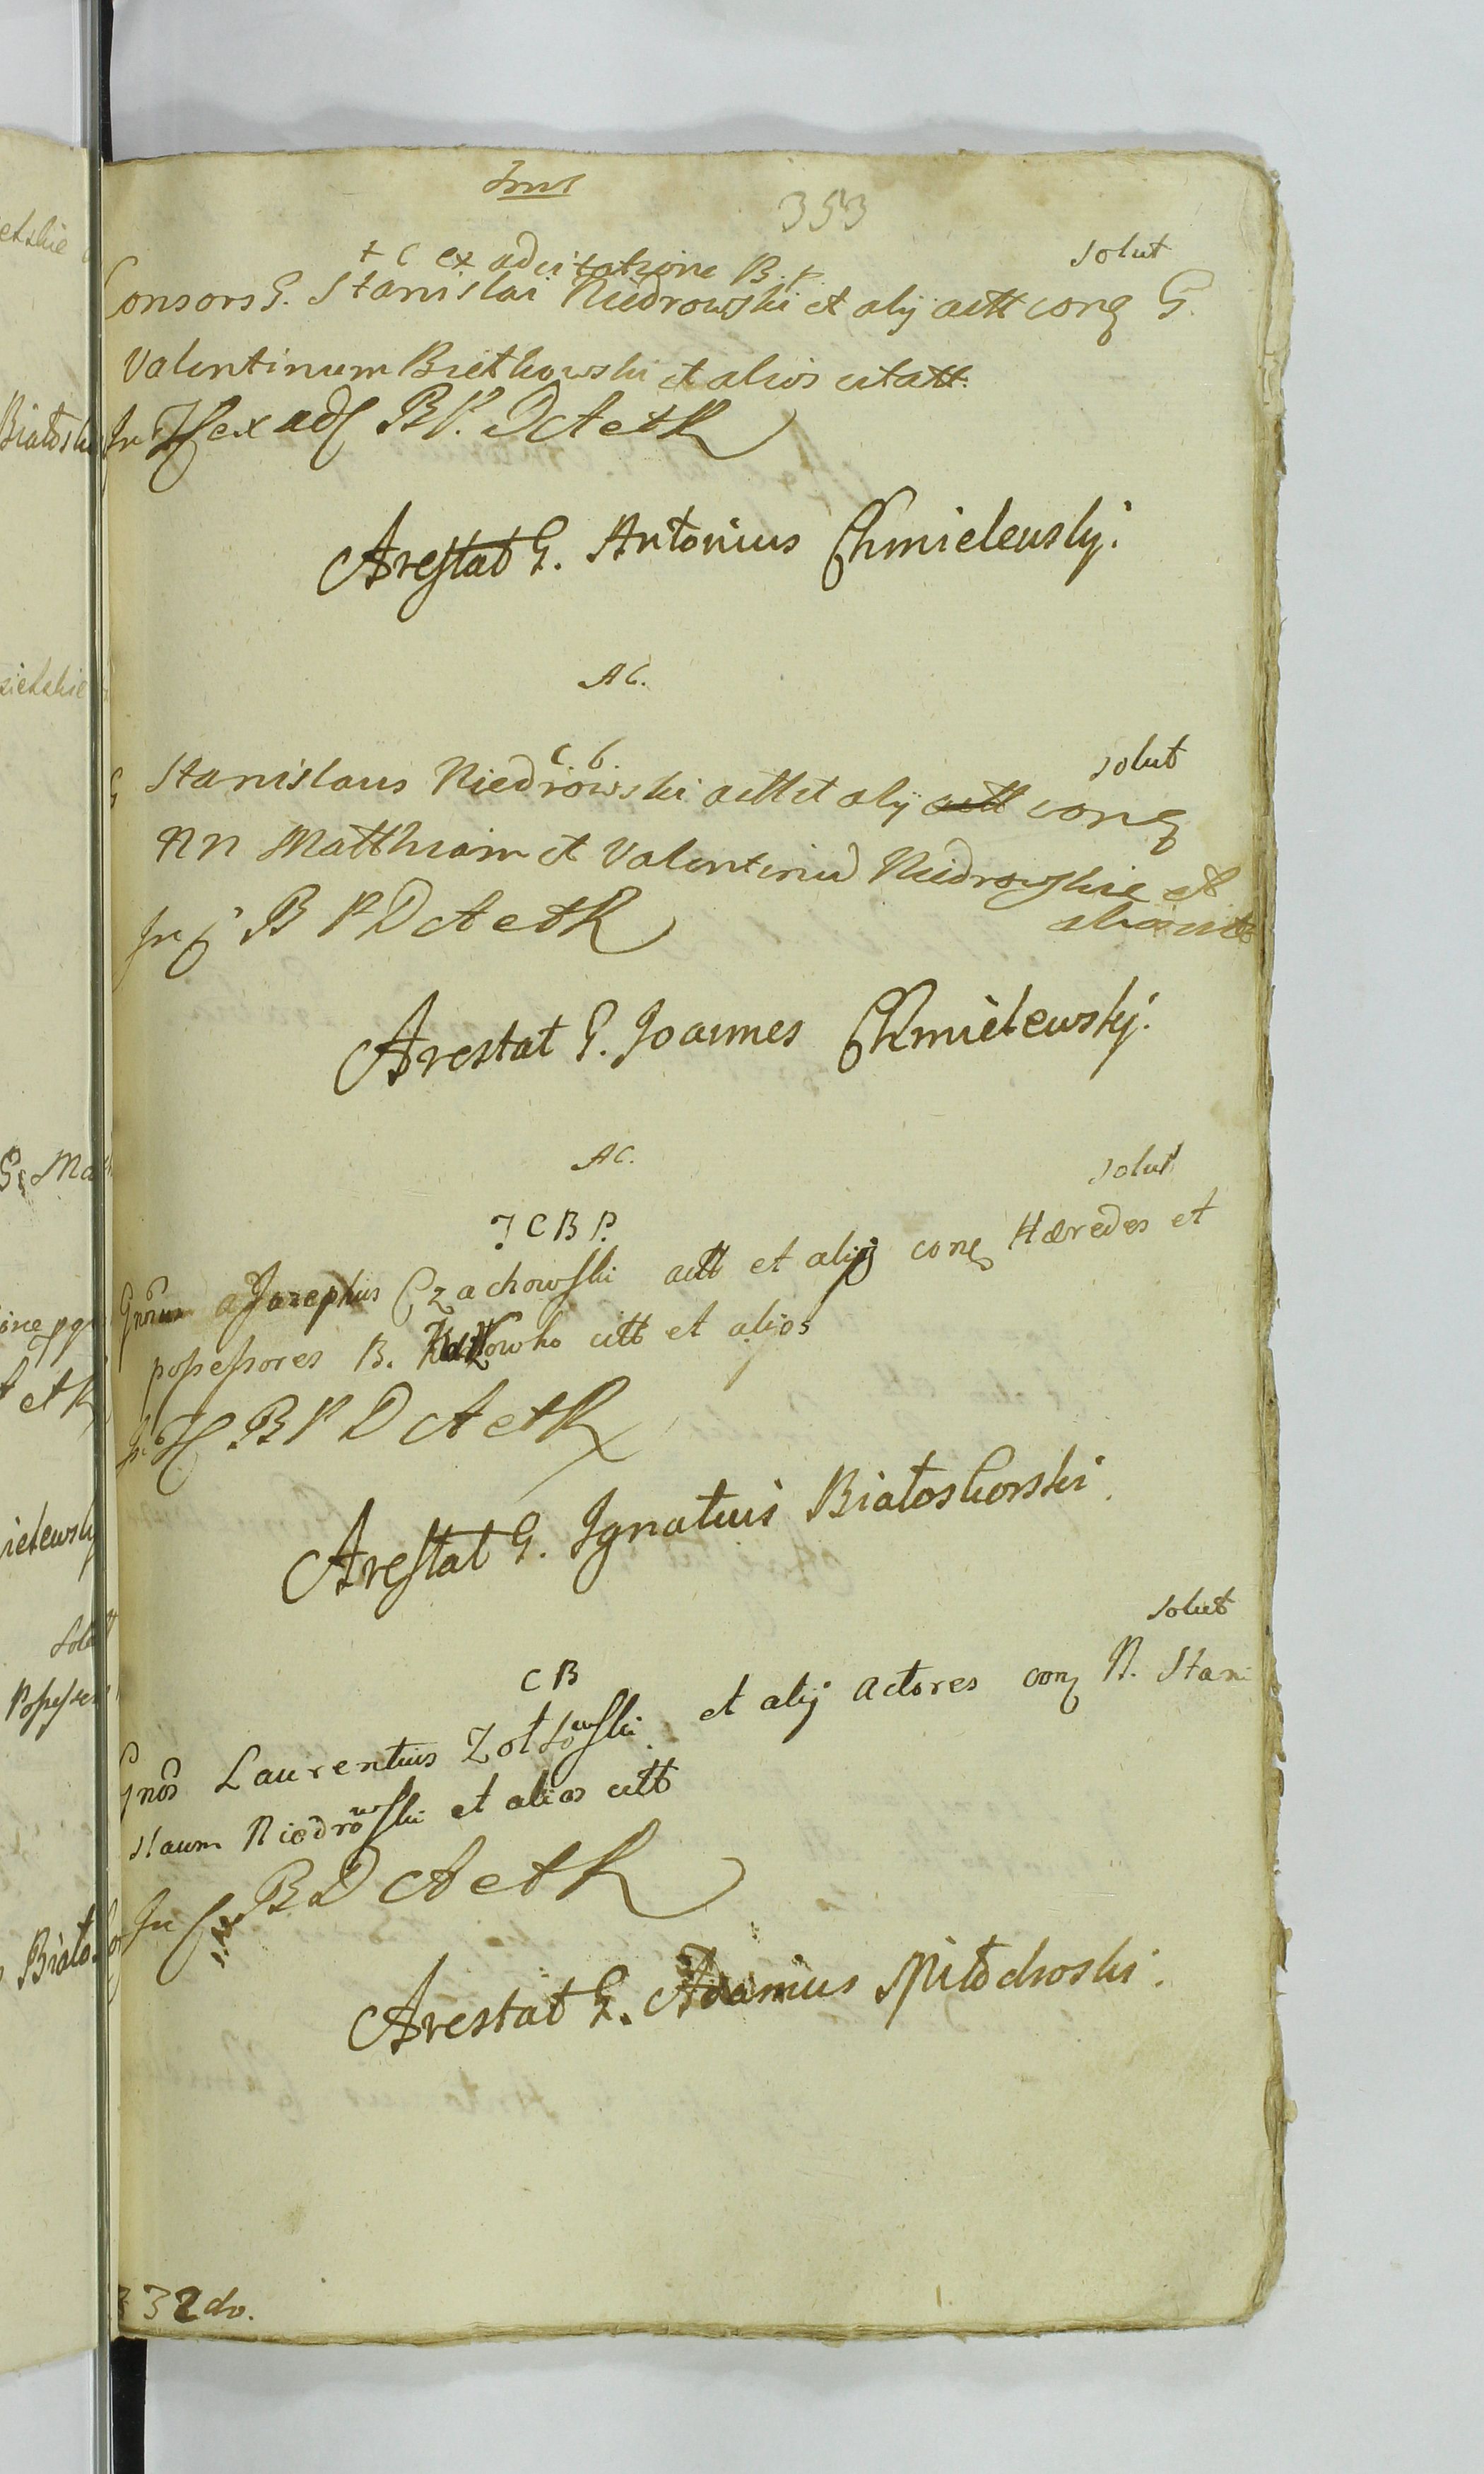 353
+ C ex adcitatione B. P.
solut
Consors G. Stanislai Niedrowski et alij actt conq G.
Valentinum Bietkowski et alios citatt.
In ex adC BP. DA et R
Arestat G. Antonius Chmielewskj.
AC.
C. C.
solut
G Stanislaus Niedrowski actt et alij actt conq
NN Matthiam et Valentinū Niedrowskie et
alios citt
In C BPDA et R
Arestat G. Joannes Chmielewskj.
AC.
solut
J C B P.
Gnrūm a Josephus Czachowski actt et alij conq Hæredes et
possessores B. citt et alijos
In BPDA et R
Arestat G. Ignatius Białoskorski.
solut
C B
Gnōs Laurentius Żołtowski et alij Actores conq N. Stani
slaum Niedrowski et alios citt
In C BDA et R
Arestat G. Adamus Młodchoski.
332do.